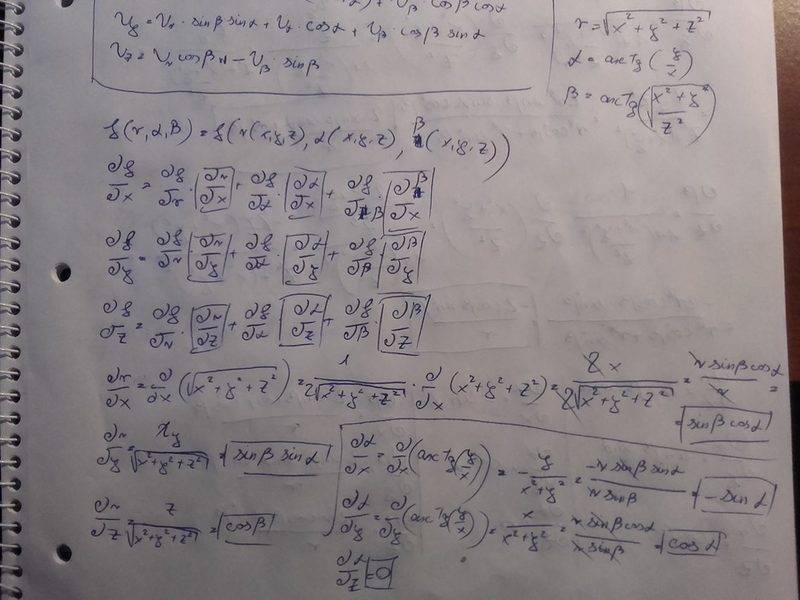 U_y = U_r · sinβ sinα + U_α · cosα + U_β · cosβ sinα
U_z = U_r cosβ - U_β · sinβ
r = √(x² + y² + z²)
α = arctg (y/x)
β = arctg (√((x² + y²)/z²))
f(r, α, β) = f(r(x,y,z), α(x,y,z), β(x,y,z))
∂f/∂x = ∂f/∂r · ∂r/∂x + ∂f/∂α · ∂α/∂x + ∂f/∂β · ∂β/∂x
∂f/∂y = ∂f/∂r · ∂r/∂y + ∂f/∂α · ∂α/∂y + ∂f/∂β · ∂β/∂y
∂f/∂z = ∂f/∂r · ∂r/∂z + ∂f/∂α · ∂α/∂z + ∂f/∂β · ∂β/∂z
∂r/∂x = ∂/∂x (√(x² + y² + z²)) = 1/(2√(x² + y² + z²)) · ∂/∂x (x² + y² + z²) = 2x/(2√(x² + y² + z²)) = r sinβ cosα / r =
= sinβ cosα
∂r/∂y = y/√(x² + y² + z²) = sinβ sinα
∂r/∂z = z/√(x² + y² + z²) = cosβ
∂α/∂x = ∂/∂x (arctg(y/x)) = - y/(x² + y²) = -r sinβ sinα / r sinβ = -sinα
∂α/∂y = ∂/∂y (arctg(y/x)) = x/(x² + y²) = r sinβ cosα / r sinβ = cosα
∂α/∂z = 0